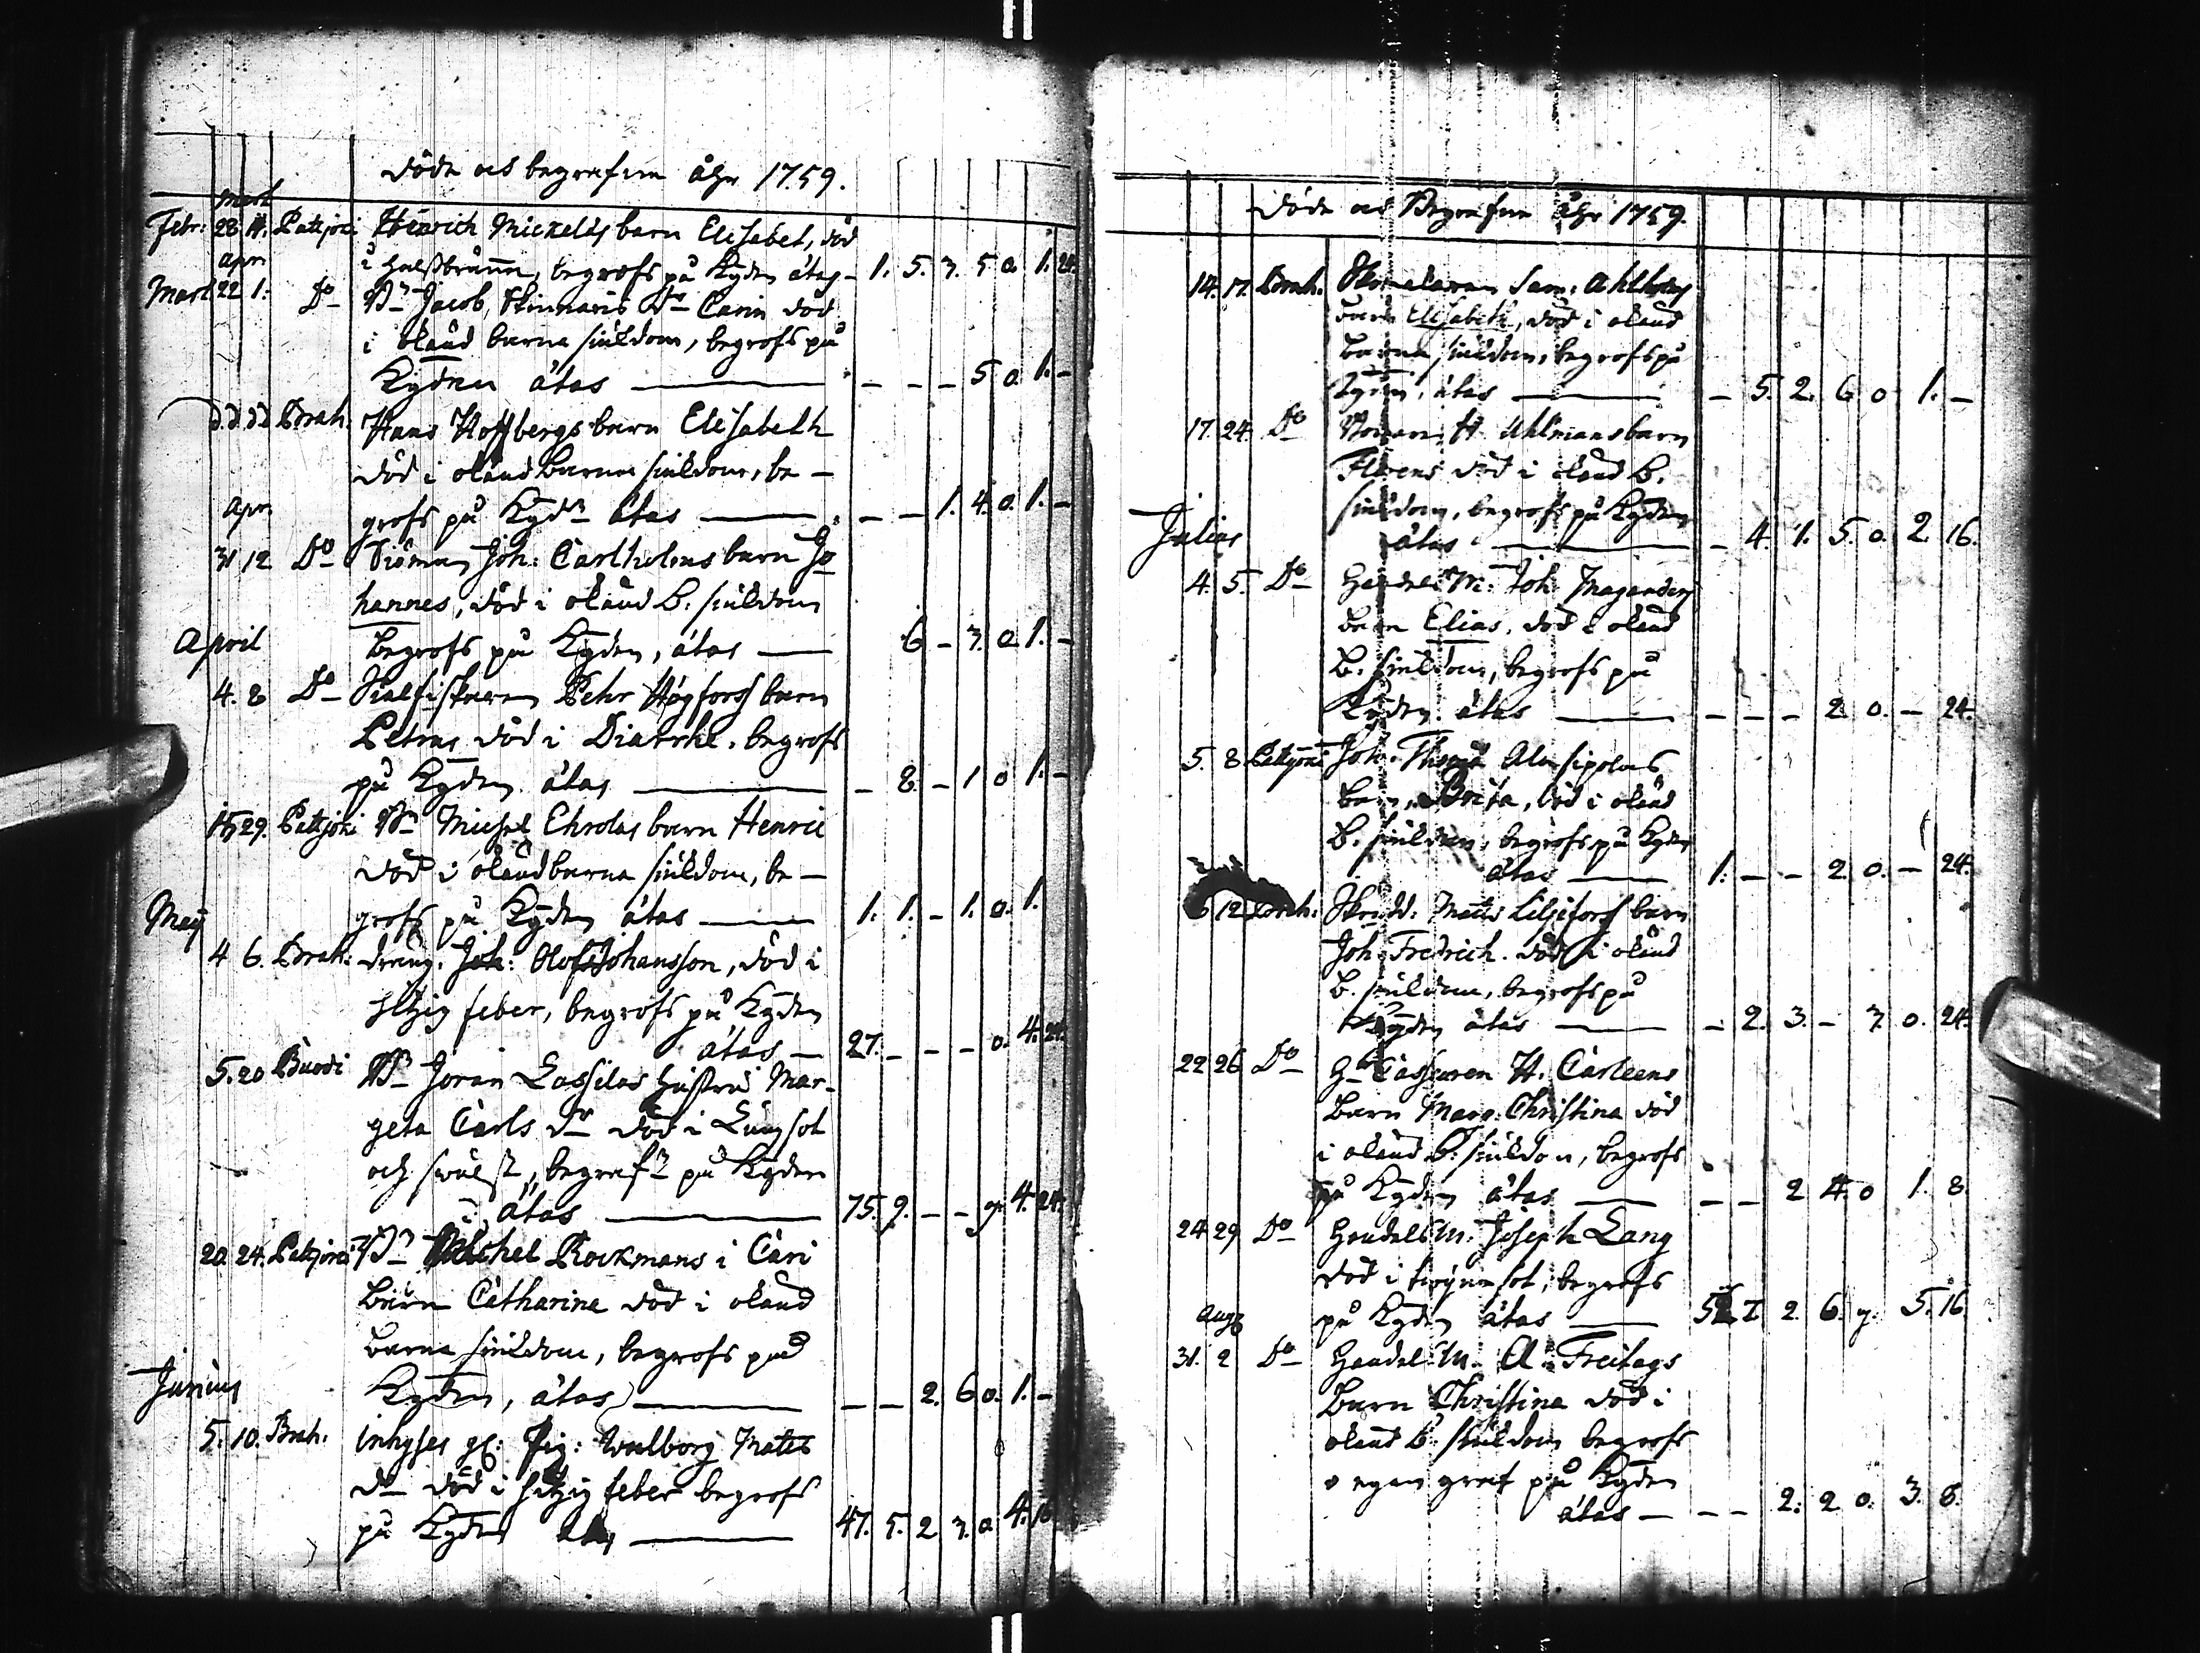 Döde och begrafne Åhr 1759.
Mart
Febr: 28 4. Pattjoki Henrich Mickelds barn Elisabet, död
i halsbränna, begrofs på Kyden åtas 1. 5. 3. 5 0. 1. 24.
Apr:
Mart 22 1. Do Bn Jacob, Skinnaris Dr Carin död
i okänd barna siukdom, begrofs på
Kyden åtas — — — — 5 0. 1. —
d. d. d d Brah. Hans Hoffbergs barn Elisabeth
död i okänd barna siukdom, be-
Apr.
grofs på Kydn åtas — — — 1. 4. 0. 1. —
31 12 Do Siöman Joh: Carlholms barn Jo
hannes, död i okänd b. siukdom
April
begrofs på Kyden, åtas — 6 — 3. 0. 1. —
4. 8 Do Sielfiskaren Pehr Högfors barn
Petrus död i Diarrhé. begrofs
på Kyden åtas — — 8. — 1 0 1. —
29. Pattjoki Bn Michel Ehrolas barn Henric
död i okänd barna siukdom, be-
May
grofs på Kyden åtas — 1. 1. — 1. 0. 1.
4 6. Brah. dräng. Joh: Olofs Johansson, död i
hitzig feber, begrofs på Kyden
åtas — 27. — — — 0. 4. 24.
5. 20 Buodi Bn Joran Lassilas hustru Mar-
geta Carls dr död i Lungsot
och swulst, begrafn på Kyden
åtas — 75. 9. — — g. 4. 24.
20. 24. Pattjoki Bn Michel Rockmans i Cari
barn Catharina död i okänd
barna siukdom, begrofs på
Junius
Kyden, åtas — — — 2. 6 0. 1. —
5. 10. Brah. inhyses gl: pig: Walborg Mats
dr död i hitzig feber begrofs
på Kyden åtas — 47. 5. 2 3. 0. 4.
Döde och Begrafne Åhr 1759.
14. 17. Brah. Sam: Ahlboms
barn Elisabeth, död i okänd
barna siukdom, begrofs på
Kyden, åtas — — 5. 2. 6 0 1. —
17. 24. Do H. Uhlmans barn
Florens död i okänd b.
siukdom, begrofs på Kyden
Julius
åtas — — 4. 1. 5. 0. 2. 16.
4. 5. Do Handels M: Joh: Maganders
barn Elias, död i okänd
b. siukdom, begrofs på
Kyden åtas — — — — 2. 0. — 24.
5. 8. Pattjoki Joh: Thomæ Alasipolas
barn, Brita, död i okänd
b. siukdom, begrofs på Kyden
åtas — 1. — — 2. 0. — 24.
12 Brah: Skrädd: Matts Liljefors barn
Joh: Fredrich. död i okänd
b. siukdom, begrofs på
Kyden åtas — — 2. 3. — 3. 0. 24.
22 26 Do Cassuren H. Carleens
barn Marg: Christina död
i okänd b: siukdom, begrofs
på Kyden åtas — — — 2 4. 0 1. 8.
24 29 Do Handels M. Joseph Lang
död i twinsot, begrofs
Aug:
på Kyden åtas — 2 6. g. 5. 16.
31. 2 Do Handels M. A: Freitags
barn Christina död i
okänd b. siukdom begrofs
i egen graf på Kyden
åtas — — — 2. 2 0. 3. 8.